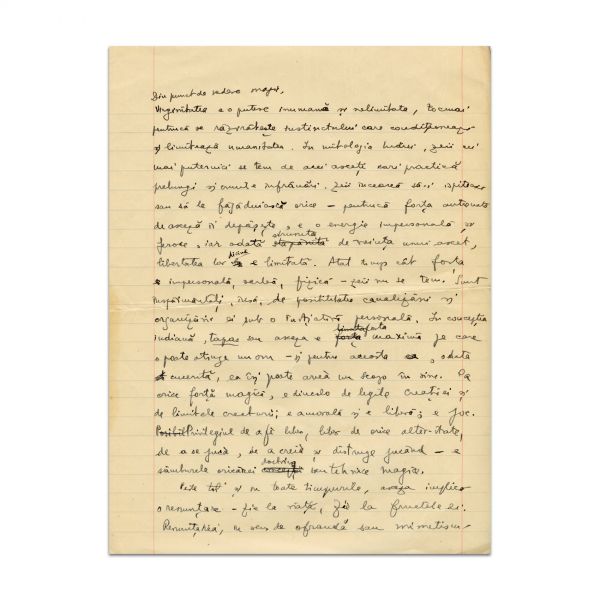 Din punct de vedere magic,
Virginitatea e o putere inumană și nelimitată, tocmai
pentru că se răzvrătește instinctului care condiționează
și limitează umanitatea. În mitologia hindusă, zeii cei
mai puternici se tem de acei asceți cari practică
prelungi și crunte înfrânări. Zeii încearcă să-i ispitească
sau să le făgăduiască orice – pentrucă forța
de asceză îi depășește, e o energie impersonală și
feroce; iar odată strunită stăpânită de voința unui ascet,
libertatea lor divină e limitată. Atât timp cât forța
e impersonală, fizică – zeii nu se tem. Sunt
însă, de posibilitatea canalizării și
organizării ei sub o personală. În concepția
indiană, tapas sau asceza e forța maximă pe care
o poate atinge un om – și pentru aceasta , odată
cucerită, ea își poate avea un scop în sine. Ca
orice forță magică, e dincolo de legile Creației și
de limitele creaturii; e amorală și e liberă; e joc.
Privilegiul de a fi liber, liber de orice alteritate,
de a se juca, de a creia și distruge jucând – e
sâmburele oricărei sau tehnice magice.
Peste tot și în toate timpurile, asceza implică
o renunțare – fie la viață, fie la fructele ei.
Renunțarea, în sens de ofrandă sau mimetism